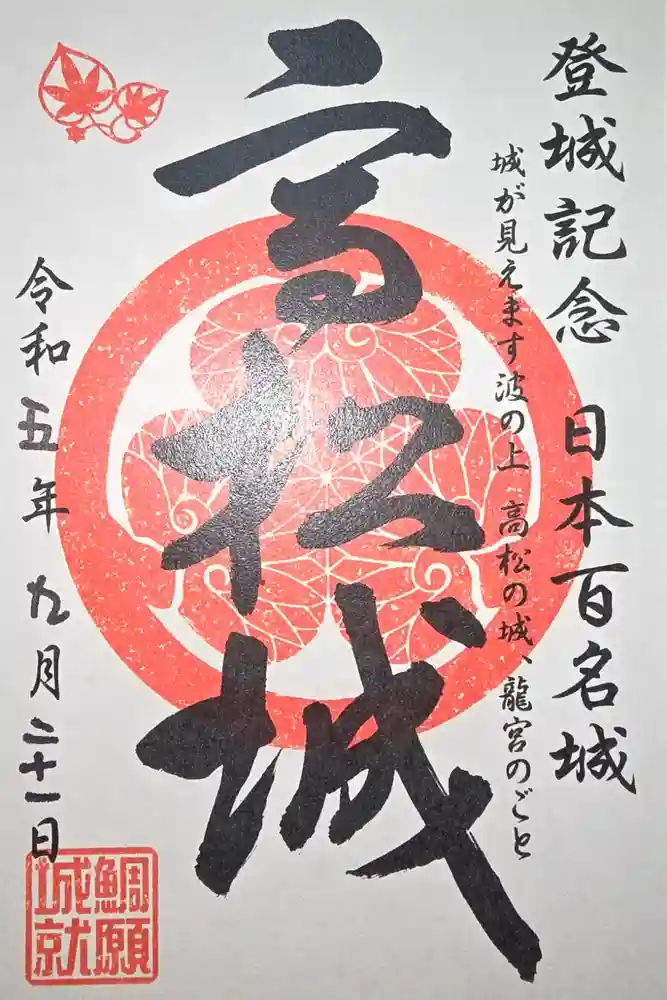 登城記念 日本百名城
城が見えます波の上 高松の城、龍宮のごと
高松城
令和五年 九月二十一日
鯛願城就